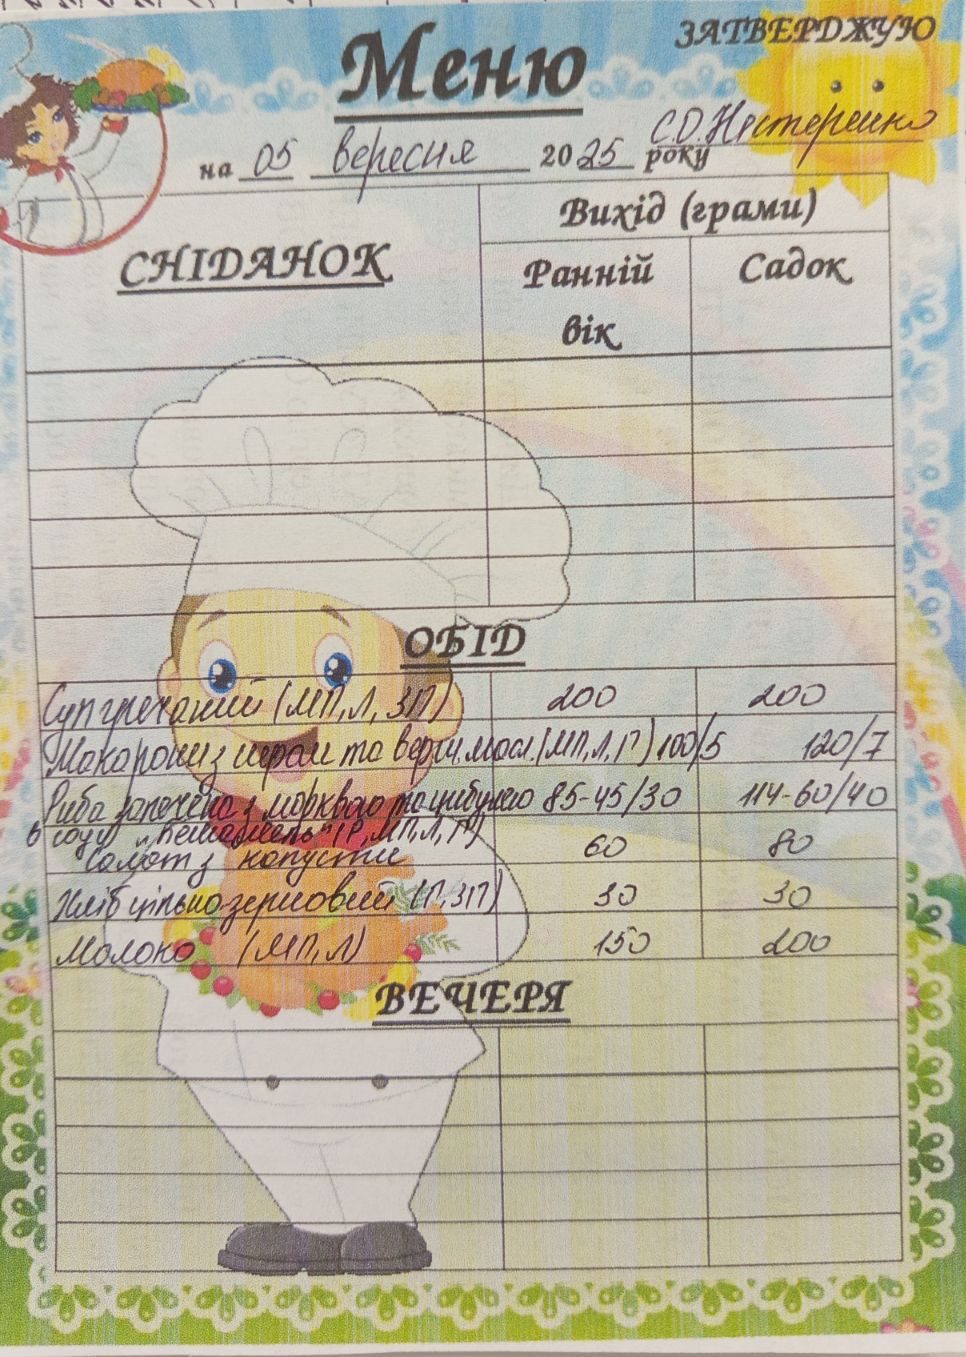 Меню
ЗАТВЕРДЖУЮ
С.О. Нестеренко
на 05 вересня 2025 року
СНІДАНОК
Вихід (грами)
Ранній вік
Садок
ОБІД
Суп гречаний (МП, Л, ЗП) 200 200
Макарони з сиром та верш. масл. (МП, Л, Г) 100/5 120/7
Риба запечена з морквою та цибулею 85-45/30 114-60/40
в соусі „Бешамель" (Р, МП, Л, Г)
Салат з капусти 60 80
Хліб цільнозерновий (Г, ЗП) 30 30
Молоко (МП, Л) 150 200
ВЕЧЕРЯ